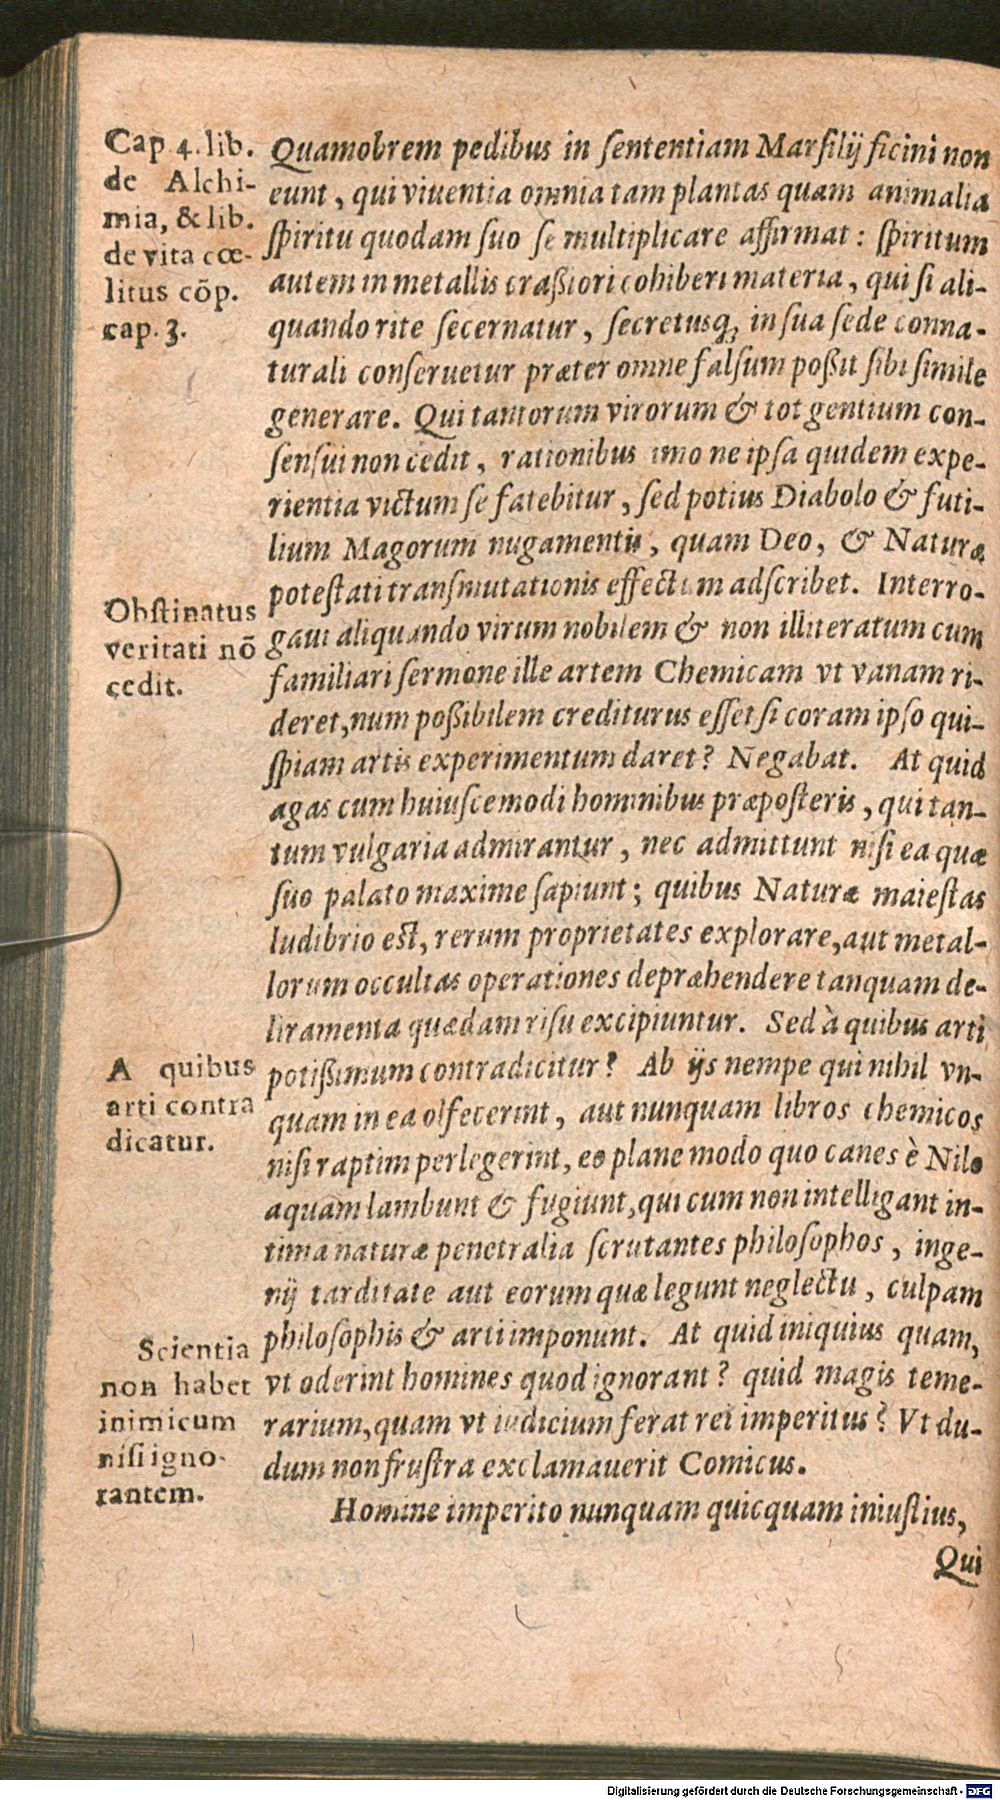 Cap 4. lib.
de Alchi-
mia, & lib.
de vita cœ-
litus cõp.
cap. 3.
Quamobrem pedibus in ſententiam Marſilij ficini non
eunt, qui viuentia omnia tam plantas quam animalia
ſpiritu quodam ſuo ſe multiplicare affirmat: ſpiritum
autem in metallis craßiori cohiberi materia, qui ſi ali-
quando rite ſecernatur, ſecretusq́; in ſua ſede conna-
turali conſeruetur præter omne falſum poßit ſibi ſimile
generare. Qui tantorum virorum & tot gentium con-
ſenſui non cedit, rationibus imo ne ipſa quidem expe-
rientia victum ſe fatebitur, ſed potius Diabolo & futi-
lium Magorum nugamentis, quam Deo, & Naturæ
poteſtati tranſmutationis effectum adſcribet. Interro-
Obſtinatus
veritati nõ
cedit.
gaui aliquando virum nobilem & non illiteratum cum
familiari ſermone ille artem Chemicam vt vanam ri-
deret, num poßibilem crediturus eſſet ſi coram ipſo qui-
ſpiam artis experimentum daret? Negabat. At quid
agas cum huiuſcemodi hominibus præpoſteris, qui tan-
tum vulgaria admirantur, nec admittunt niſi ea quæ
ſuo palato maxime ſapiunt; quibus Naturæ maieſtas
ludibrio eſt, rerum proprietates explorare, aut metal-
lorum occultas operationes depræhendere tanquam de-
liramenta quædam riſu excipiuntur. Sed à quibus arti
A quibus
arti contra
dicatur.
potißimum contradicitur? Ab ijs nempe qui nihil vn-
quam in ea olfecerint, aut nunquam libros chemicos
niſi raptim perlegerint, eo plane modo quo canes è Nilo
aquam lambunt & fugiunt, qui cum non intelligant in-
tima naturæ penetralia ſcrutantes philoſophos, inge-
nij tarditate aut eorum quæ legunt neglectu, culpam
philoſophis & arti imponunt. At quid iniquius quam,
Scientia
non habet
inimicum
niſi igno-
rantem.
vt oderint homines quod ignorant? quid magis teme-
rarium, quam vt iudicium ferat rei imperitus? Vt du-
dum non fruſtra exclamauerit Comicus.
Homine imperito nunquam quicquam iniuſtius,
Qui
Digitalisierung gefördert durch die Deutsche Forschungsgemeinschaft - DFG